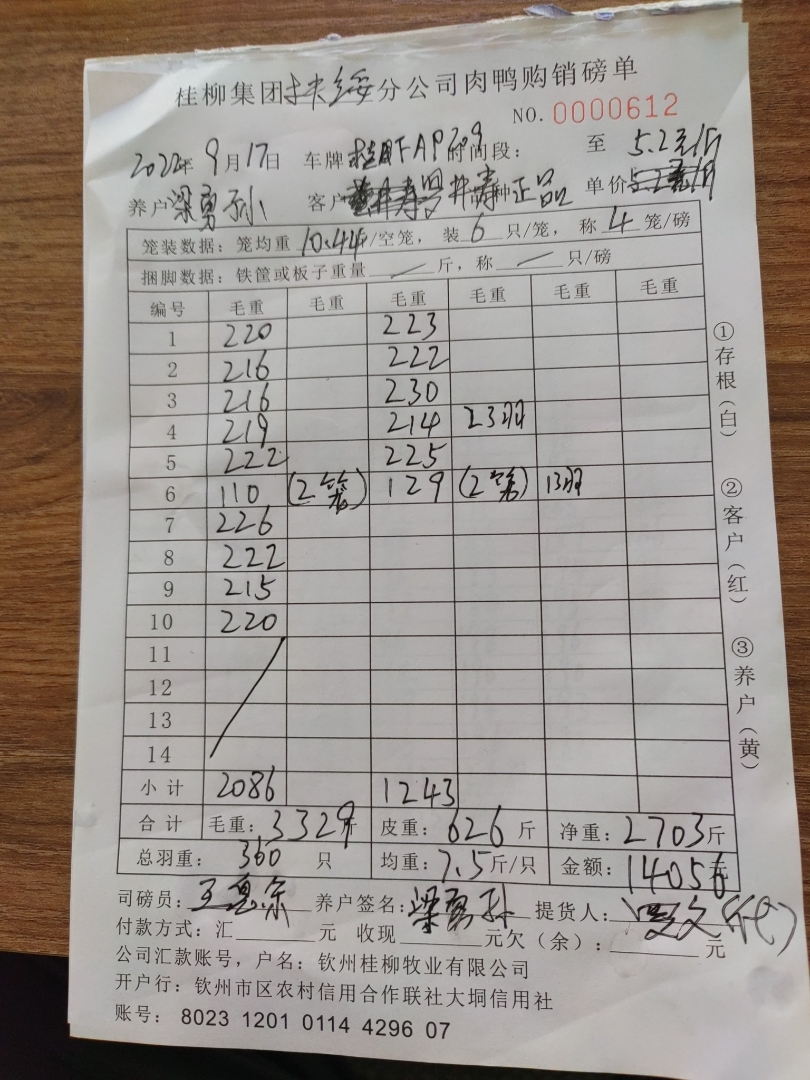 桂柳集团扶绥分公司肉鸭购销磅单
NO. 0000612
2022年9月17日 车牌桂FAP709时间段： 至 5.2元/斤
养户梁勇孙 客户 井寿 品种 正品 单价
笼装数据：笼均重10.44斤/空笼，装6只/笼，称4笼/磅
捆脚数据：铁筐或板子重量／斤，称／只/磅
编号 毛重 毛重 毛重 毛重 毛重 毛重
1 220 223
2 216 222
3 216 230
4 219 214 23羽
5 222 225
6 110 (2笼) 129 (2笼) 13羽
7 226
8 222
9 215
10 220
11
12
13
14
小计 2086 1243
合计 毛重：3329斤 皮重：626斤 净重：2703斤
总羽重：360只 均重：7.5斤/只 金额：14056元
司磅员： 养户签名：梁勇孙 提货人：
付款方式：汇 元 收现 元欠（余）： 元
公司汇款账号，户名：钦州桂柳牧业有限公司
开户行：钦州市区农村信用合作联社大垌信用社
账号：8023 1201 0114 4296 07
①存根（白）
②客户（红）
③养户（黄）